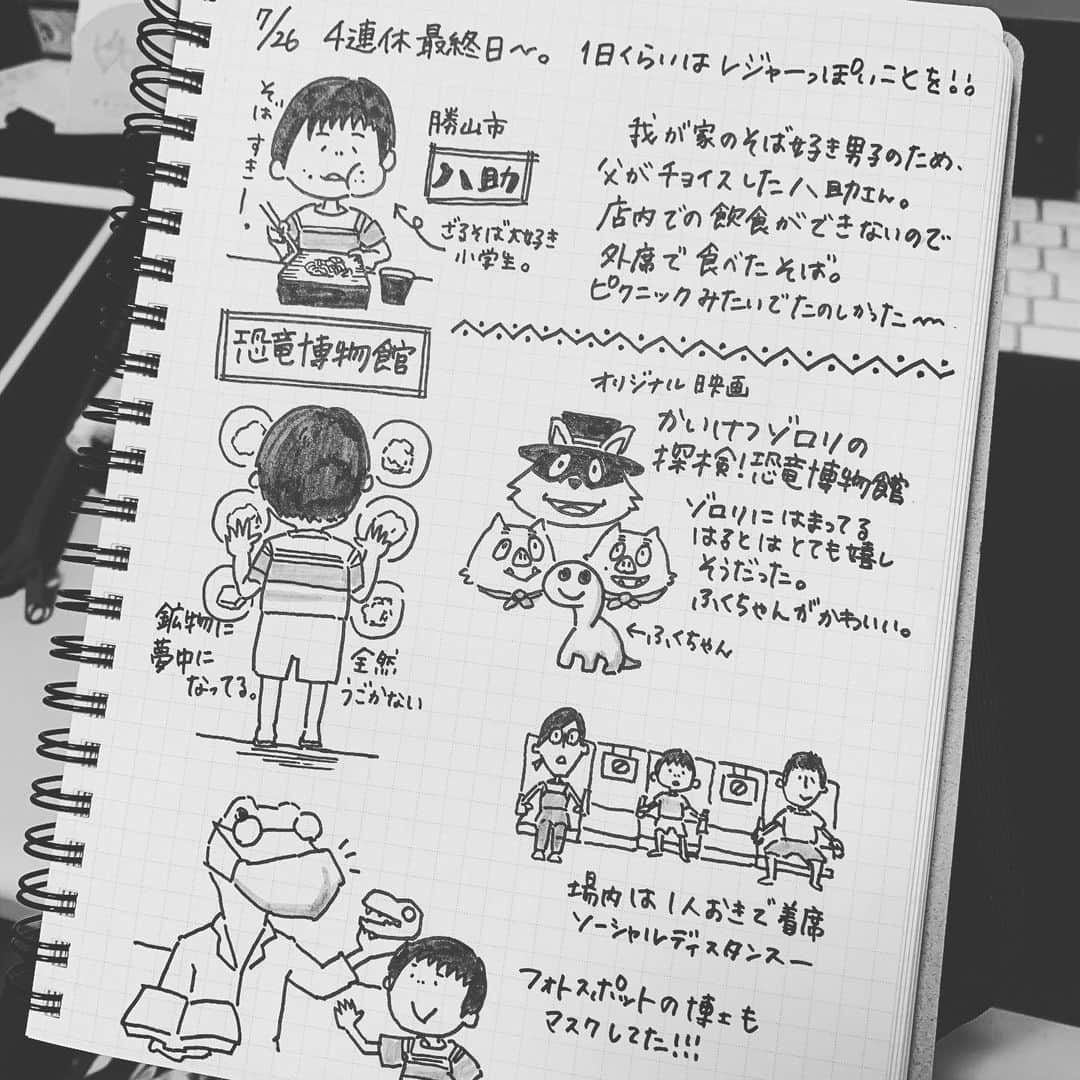 7/26 4連休最終日〜。 1日くらいはレジャーっぽいことを!!
そば すきー!
勝山市
八助
ざるそば大好き
小学生。
我が家のそば好き男子のため、
父がチョイスした八助さん。
店内での飲食ができないので
外席で食べたそば。
ピクニックみたいでたのしかった〜
恐竜博物館
鉱物に
夢中に
なってる。
全然
うごかない
オリジナル映画
かいけつゾロリの
探検!恐竜博物館
ゾロリにはまってる
はるとはとても嬉し
そうだった。
ふくちゃんがかわいい。
←ふくちゃん
場内は1人おきで着席
ソーシャルディスタンスー
フォトスポットの博士も
マスクしてた!!!